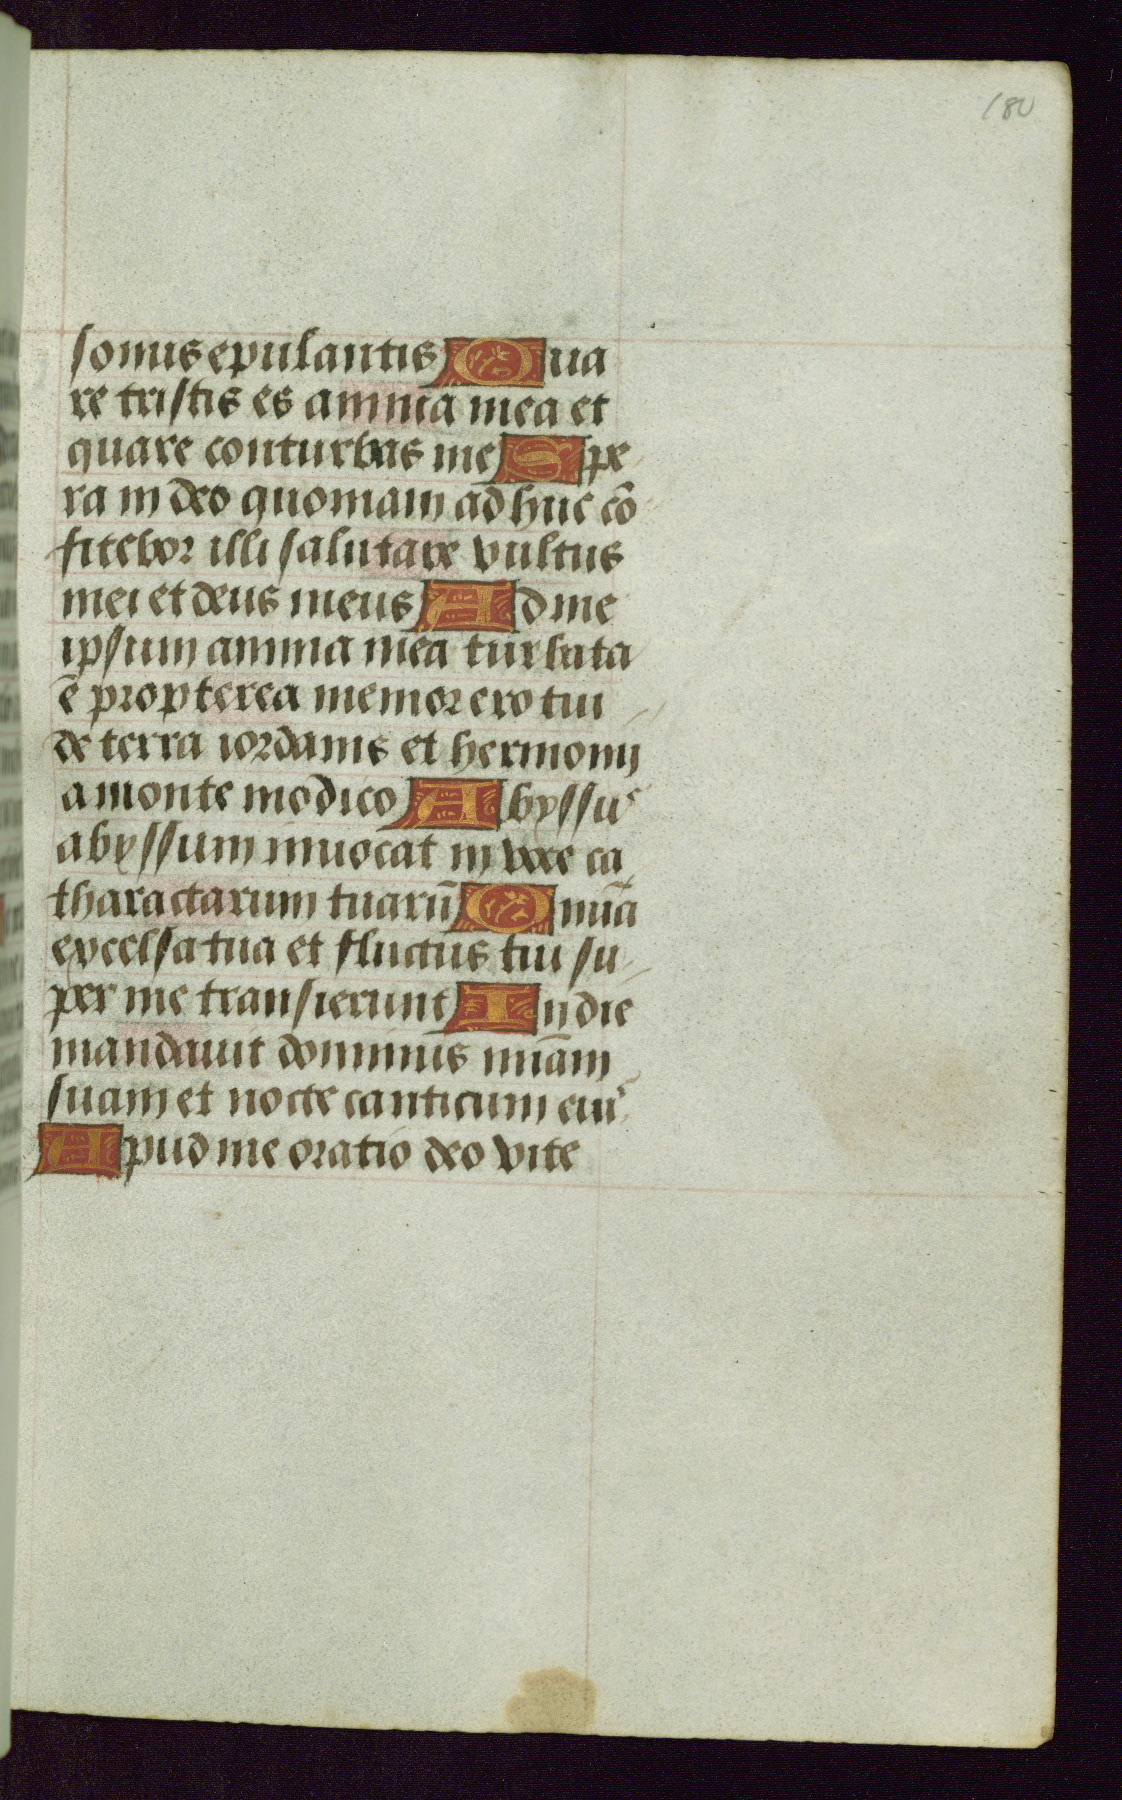 180
sonus epulantis Qua
re tristis es anima mea et
quare conturbas me Spe
ra in deo quoniam adhuc cō
fitebor illi salutare vultus
mei et deus meus Ad me
ipsum anima mea turbata
ē propterea memor ero tui
de terra iordanis et hermonij
a monte modico Abyssus
abyssum invocat in voce ca
tharactarum tuarū Omīa
excelsa tua et fluctus tui su
per me transierunt In die
mandavit dominus mīam
suam et nocte canticum eius
Apud me oratio deo vite